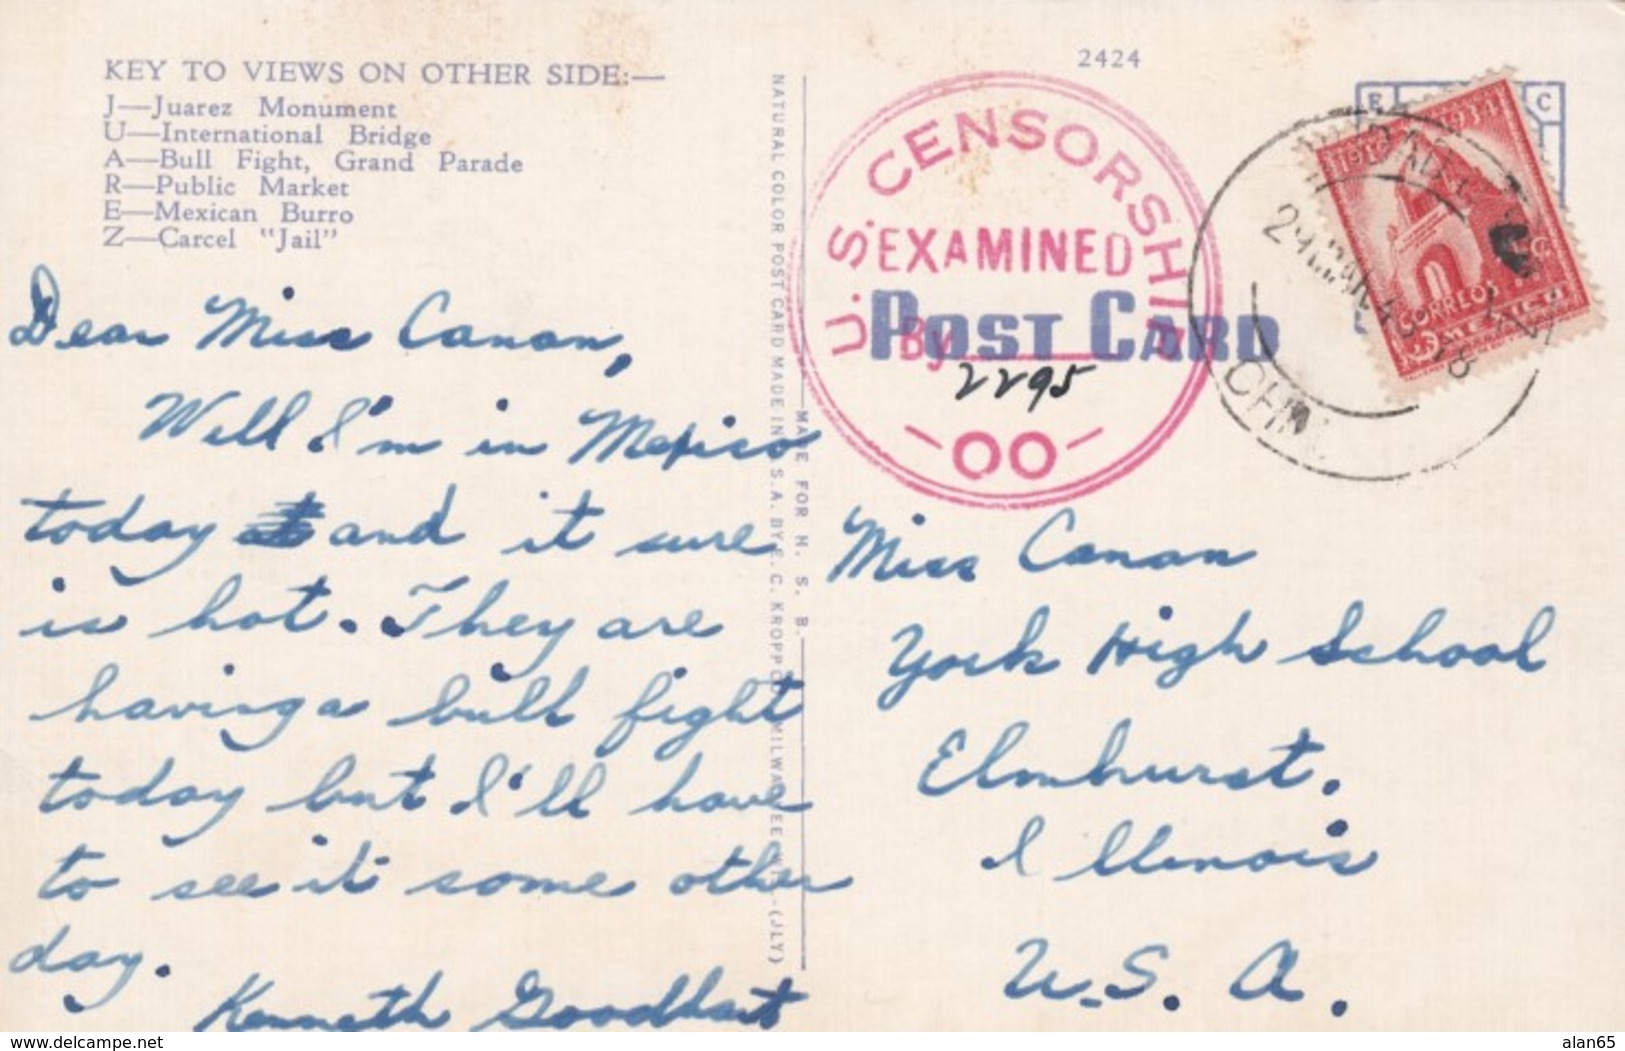 KEY TO VIEWS ON OTHER SIDE:—
J—Juarez Monument
U—International Bridge
A—Bull Fight, Grand Parade
R—Public Market
E—Mexican Burro
Z—Carcel "Jail"
Dear Miss Canan,
Well I'm in Mexico
today and it sure
is hot. They are
having a bull fight
today but I'll have
to see it some other
day.
Kenneth Goodhart
NATURAL COLOR POST CARD MADE IN U.S.A. BY E. C. KROPP CO., MILWAUKEE, WIS.-(JLY)
MADE FOR H. S. B.
2424
U.S. CENSORSHIP
EXAMINED
By
2295
-OO-
POST CARD
E C
1910 1934
CORREOS
MEXICO
CHIH.
Miss Canan
York High School
Elmhurst.
Illinois
U.S.A.
www.delcampe.net
alan65